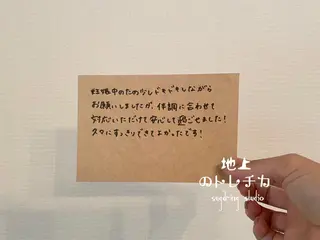 妊娠中のため少しドキドキしながら
お願いしましたが、体調に合わせて
対応いただけて安心して過ごせました！
久々にすっきりできてよかったです！
地上
のトレチカ